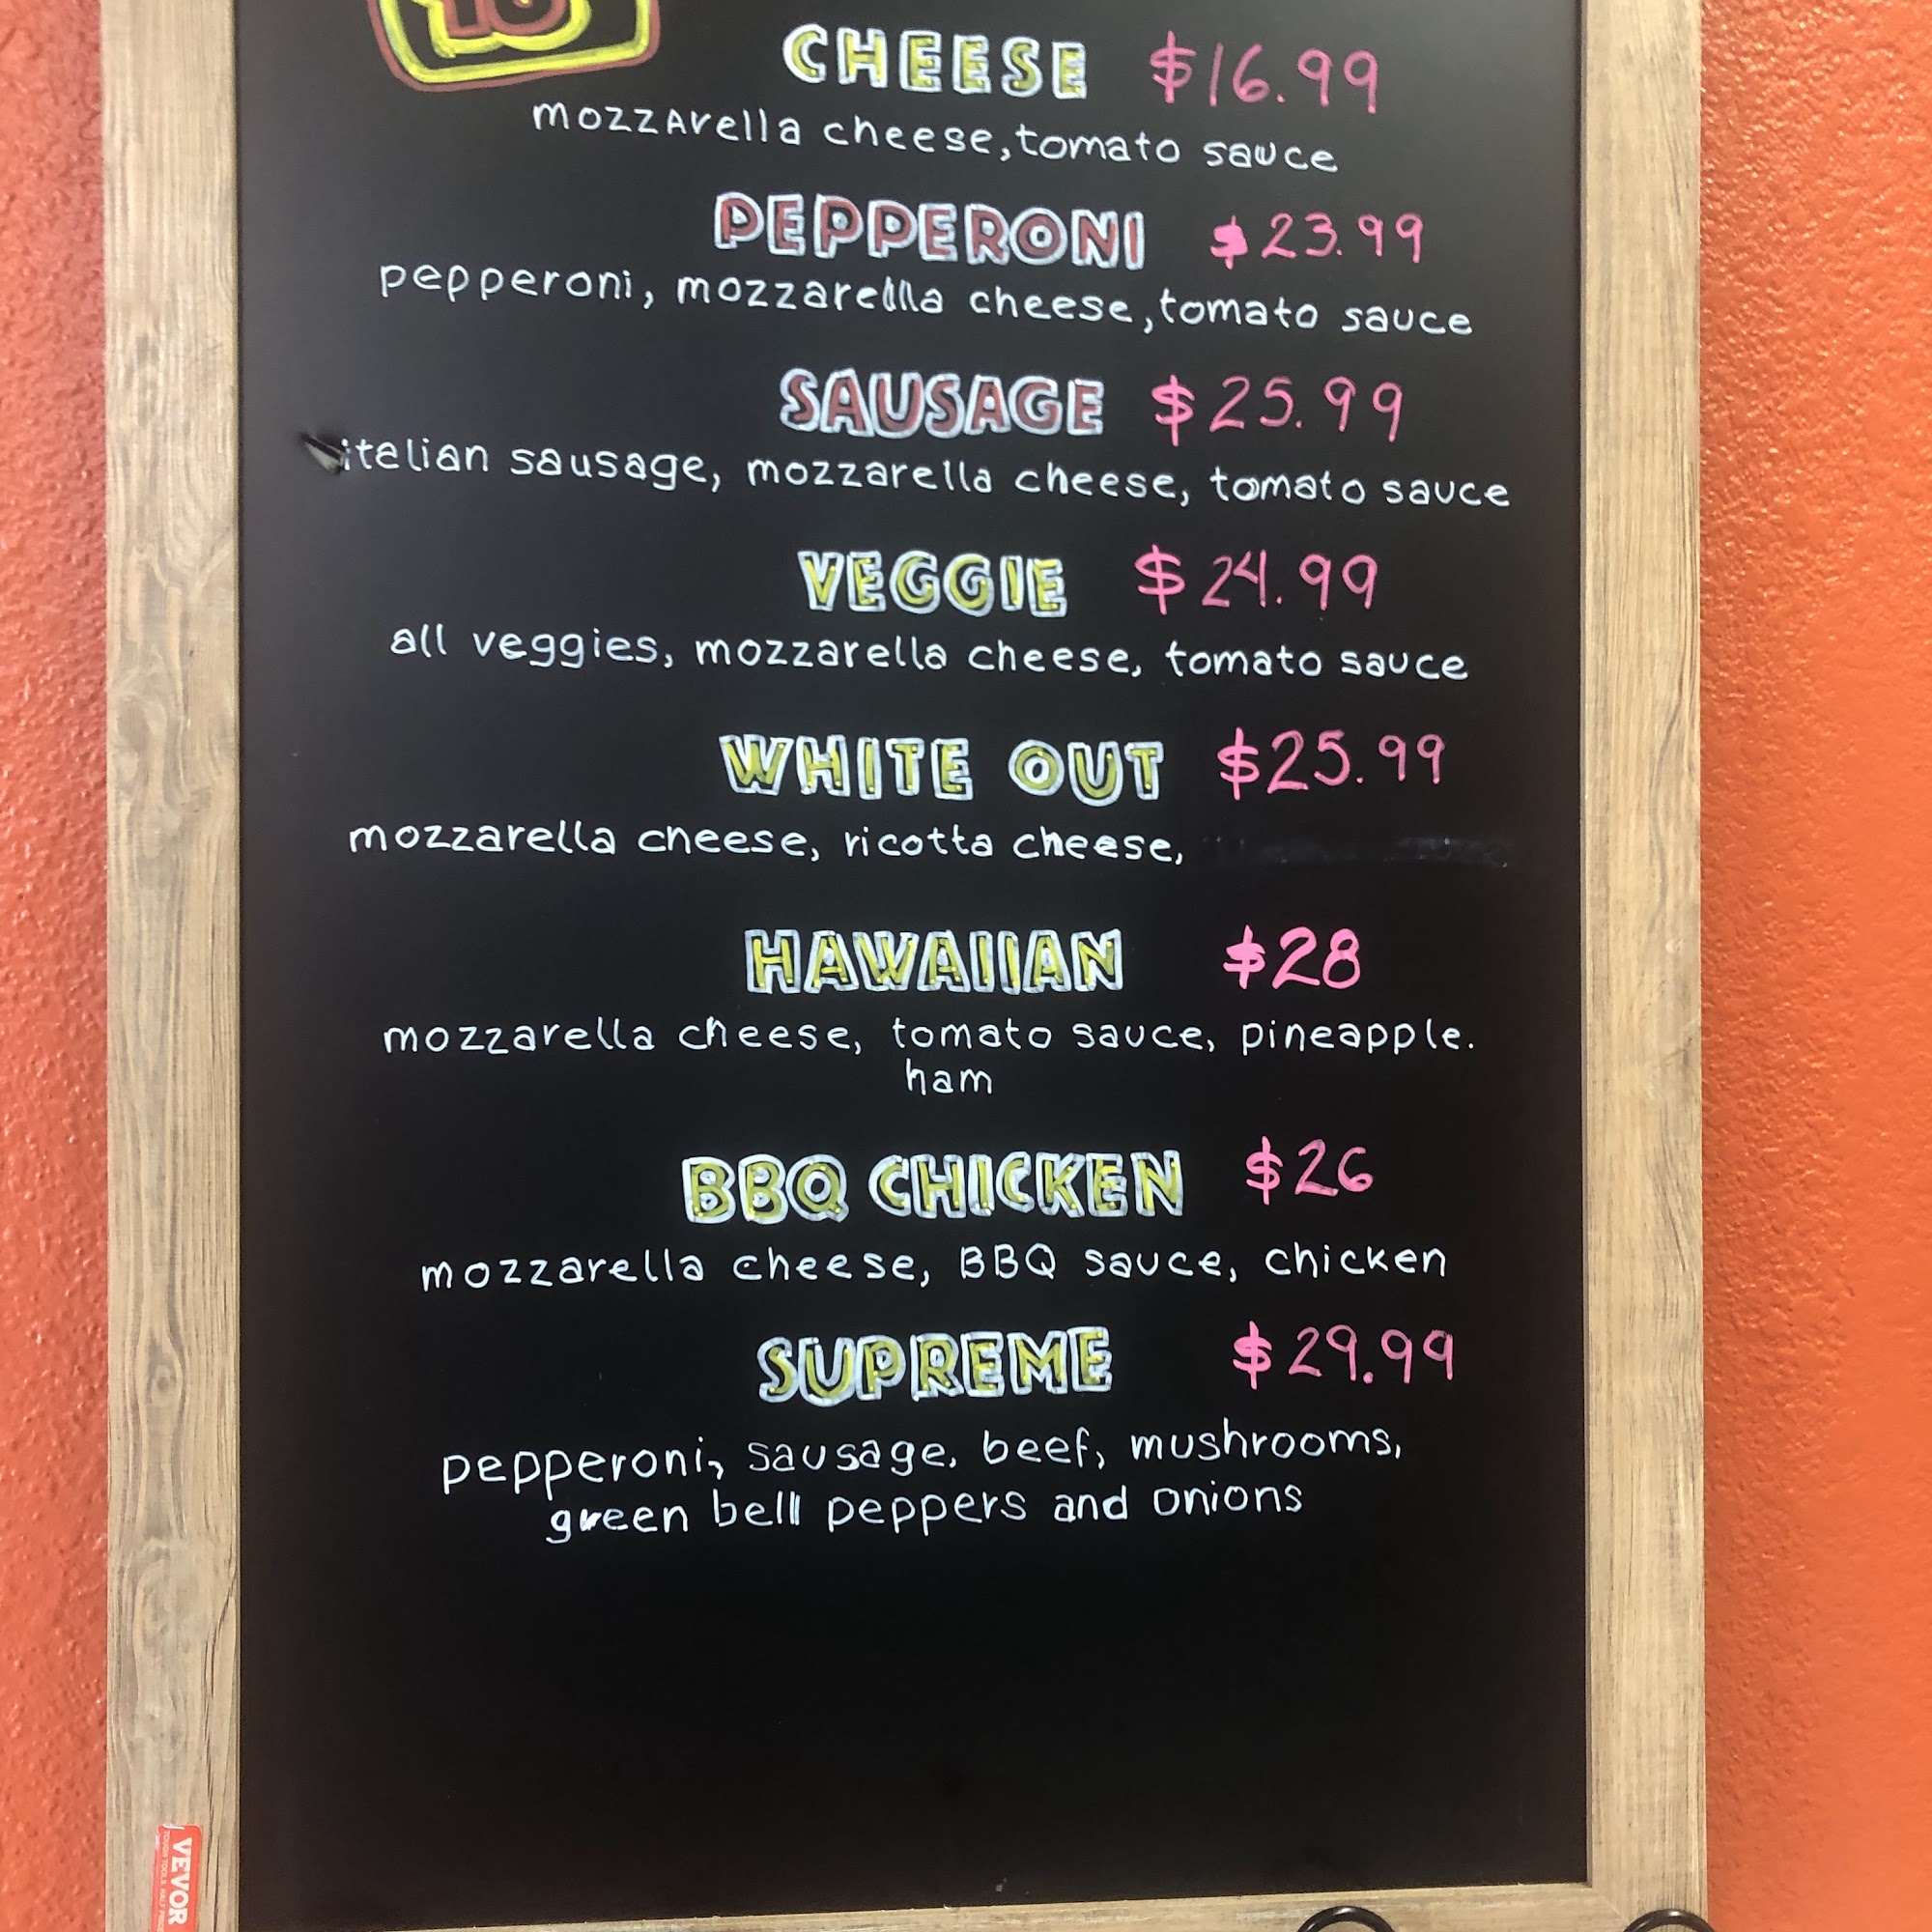 18
CHEESE $16.99
mozzArella cheese,tomato sauce
PEPPERONI $23.99
pepperoni, mozzarella cheese,tomato sauce
SAUSAGE $25.99
italian sausage, mozzarella cheese, tomato sauce
VEGGIE $24.99
all veggies, mozzarella cheese, tomato sauce
WHITE OUT $25.99
mozzarella cheese, ricotta cheese,
HAWAIIAN $28
mozzarella cheese, tomato sauce, pineapple.
ham
BBQ CHICKEN $26
mozzarella cheese, BBQ sauce, chicken
SUPREME $29.99
pepperoni, sausage, beef, mushrooms,
green bell peppers and onions
VEVOR
TOUGH TOOLS, HALF PRICE